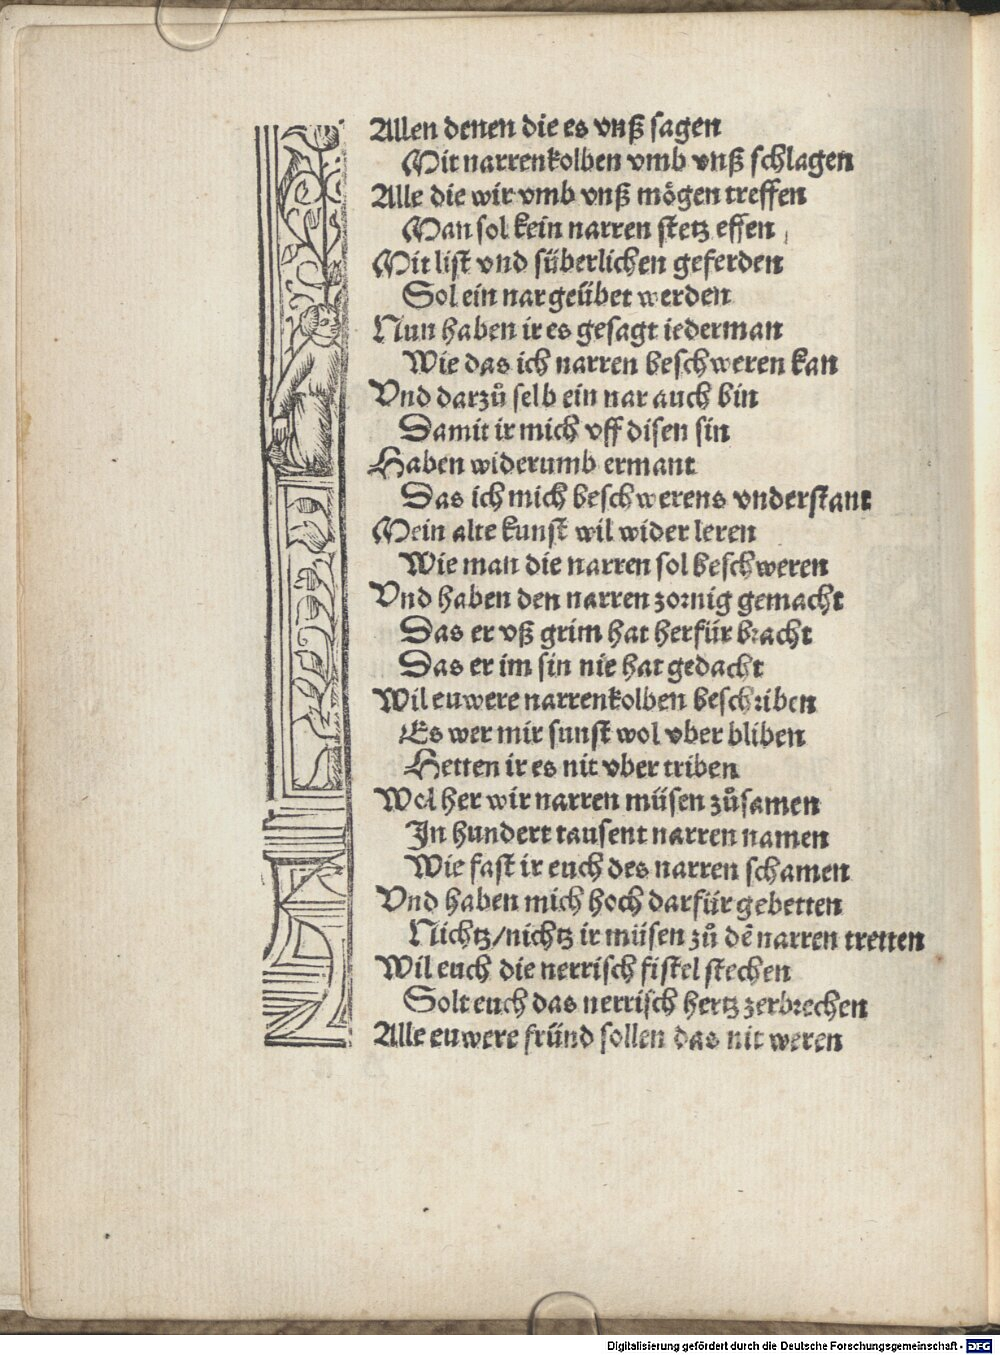 Allen denen die es vnß sagen
Mit narrenkolben vmb vnß schlagen
Alle die wir vmb vnß mögen treffen
Man sol kein narren stetz effen
Mit list vnd süberlichen geferden
Sol ein nar geübet werden
Nun haben ir es gesagt iederman
Wie das ich narren beschweren kan
Vnd darzů selb ein nar auch bin
Damit ir mich vff disen sin
Haben widerumb ermant
Das ich mich beschwerens vnderstant
Mein alte kunst wil wider leren
Wie man die narren sol beschweren
Vnd haben den narren zornig gemacht
Das er vß grim hat herfür bracht
Das er im sin nie hat gedacht
Wil euwere narrenkolben beschriben
Es wer mir sunst wol vber bliben
Hetten ir es nit vber triben
Wol her wir narren müsen zůsamen
In hundert tausent narren namen
Wie fast ir euch des narren schamen
Vnd haben mich hoch darfür gebetten
Nichtz/nichtz ir müsen zů dē narren tretten
Wil euch die nerrisch fistel stechen
Solt euch das nerrisch hertz zerbrechen
Alle euwere fründ sollen das nit weren
Digitalisierung gefördert durch die Deutsche Forschungsgemeinschaft - DFG